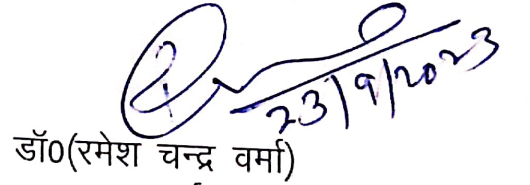 23/9/2023
डॉ0(रमेश चन्द्र वर्मा)